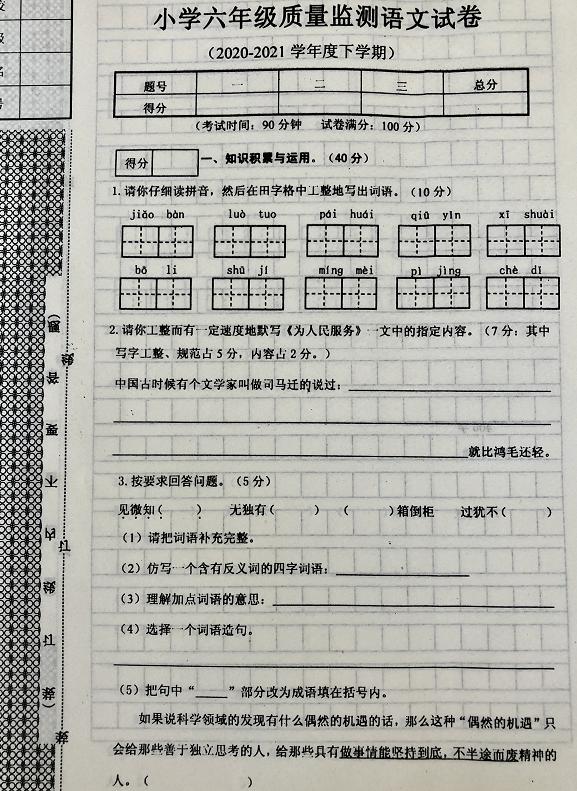 小学六年级质量监测语文试卷
（2020-2021 学年度下学期）
题号 一 二 三 总分
得分
（考试时间：90 分钟 试卷满分：100 分）
得分 一、知识积累与运用。（40 分）
1. 请你仔细读拼音，然后在田字格中工整地写出词语。（10 分）
jiǎo bàn luò tuo pái huái qiū yǐn xī shuài
bō li shū jí míng mèi pì jìng chè dǐ
2. 请你工整而有一定速度地默写《为人民服务》一文中的指定内容。（7 分：其中
写字工整、规范占 5 分，内容占 2 分。）
中国古时候有个文学家叫做司马迁的说过：
就比鸿毛还轻。
3. 按要求回答问题。（5 分）
见微知（ ） 无独有（ ） （ ）箱倒柜 过犹不（ ）
（1）请把词语补充完整。
（2）仿写一个含有反义词的四字词语：
（3）理解加点词语的意思：
（4）选择一个词语造句。
（5）把句中“_____”部分改为成语填在括号内。
如果说科学领域的发现有什么偶然的机遇的话，那么这种“偶然的机遇”只
会给那些善于独立思考的人，给那些具有做事情能坚持到底，不半途而废精神的
人。（ ）
题）
答
要
不
内
线
订
装
（
线
订
装